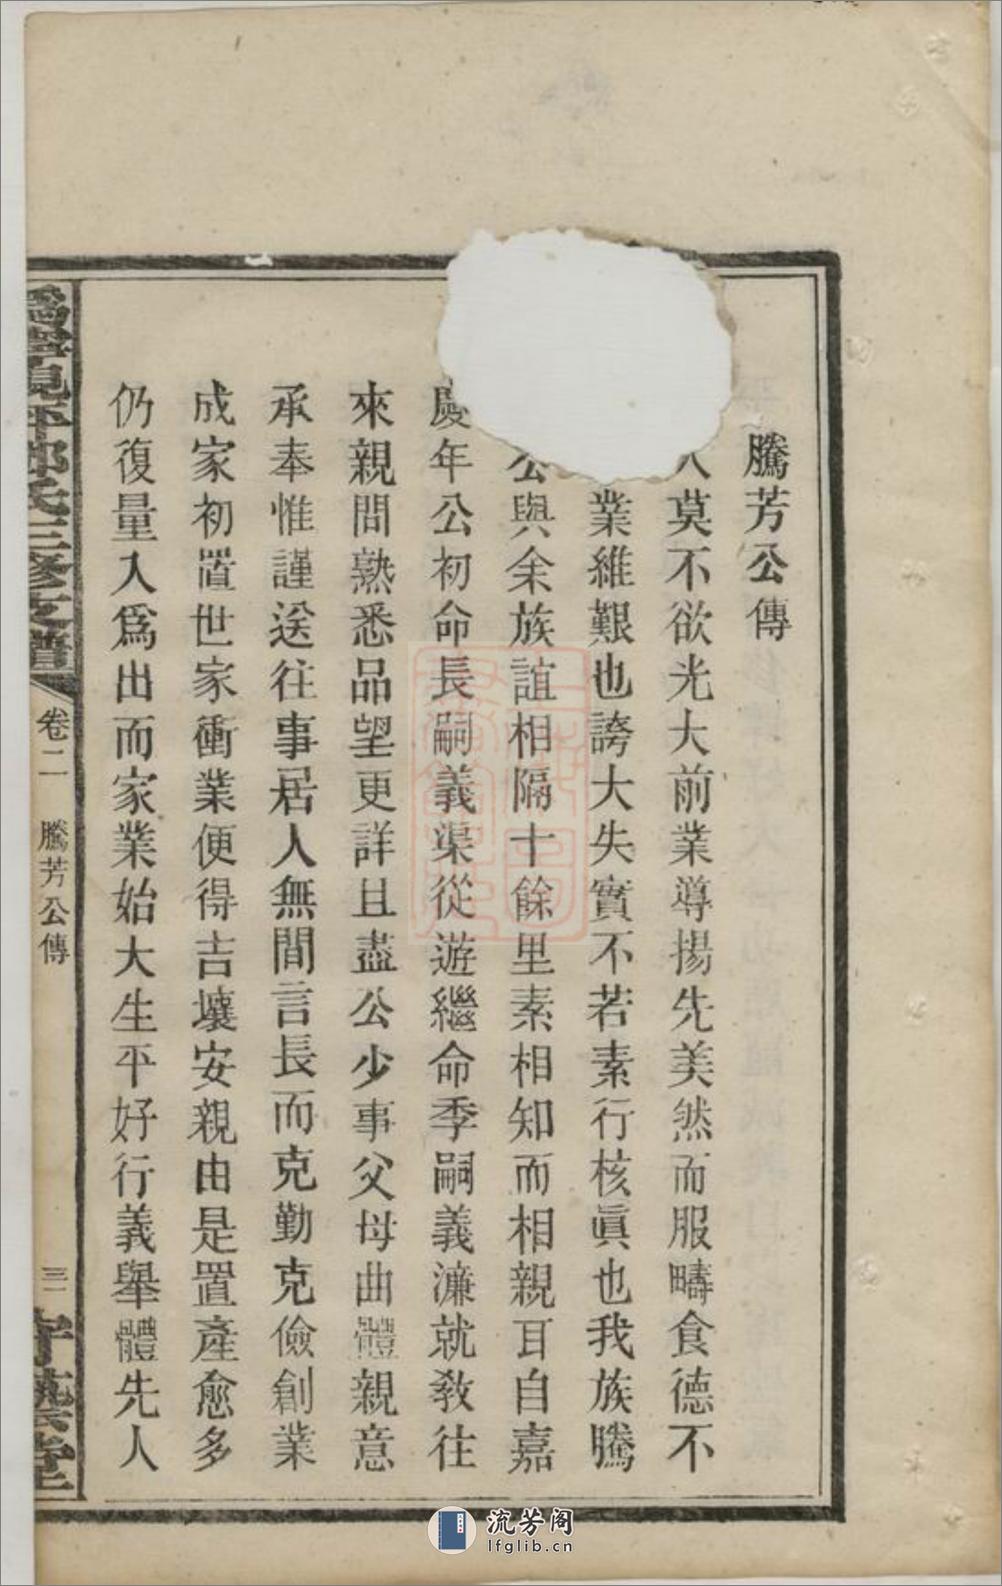 騰芳公傳
人莫不欲光大前業導揚先美然而服疇食德不
業維艱也誇大失實不若素行核眞也我族騰
公與余族誼相隔十餘里素相知而相親耳自嘉
慶年公初命長嗣義渠從遊繼命季嗣義濂就教往
來親問熟悉品望更詳且盡公少事父母曲體親意
承奉惟謹送往事居人無間言長而克勤克儉創業
成家初置世家衝業便得吉壤安親由是置產愈多
仍復量入爲出而家業始大生平好行義舉體先人
氏三修支譜
卷二
騰芳公傳
三
堂
流芳阁
lfglib.cn